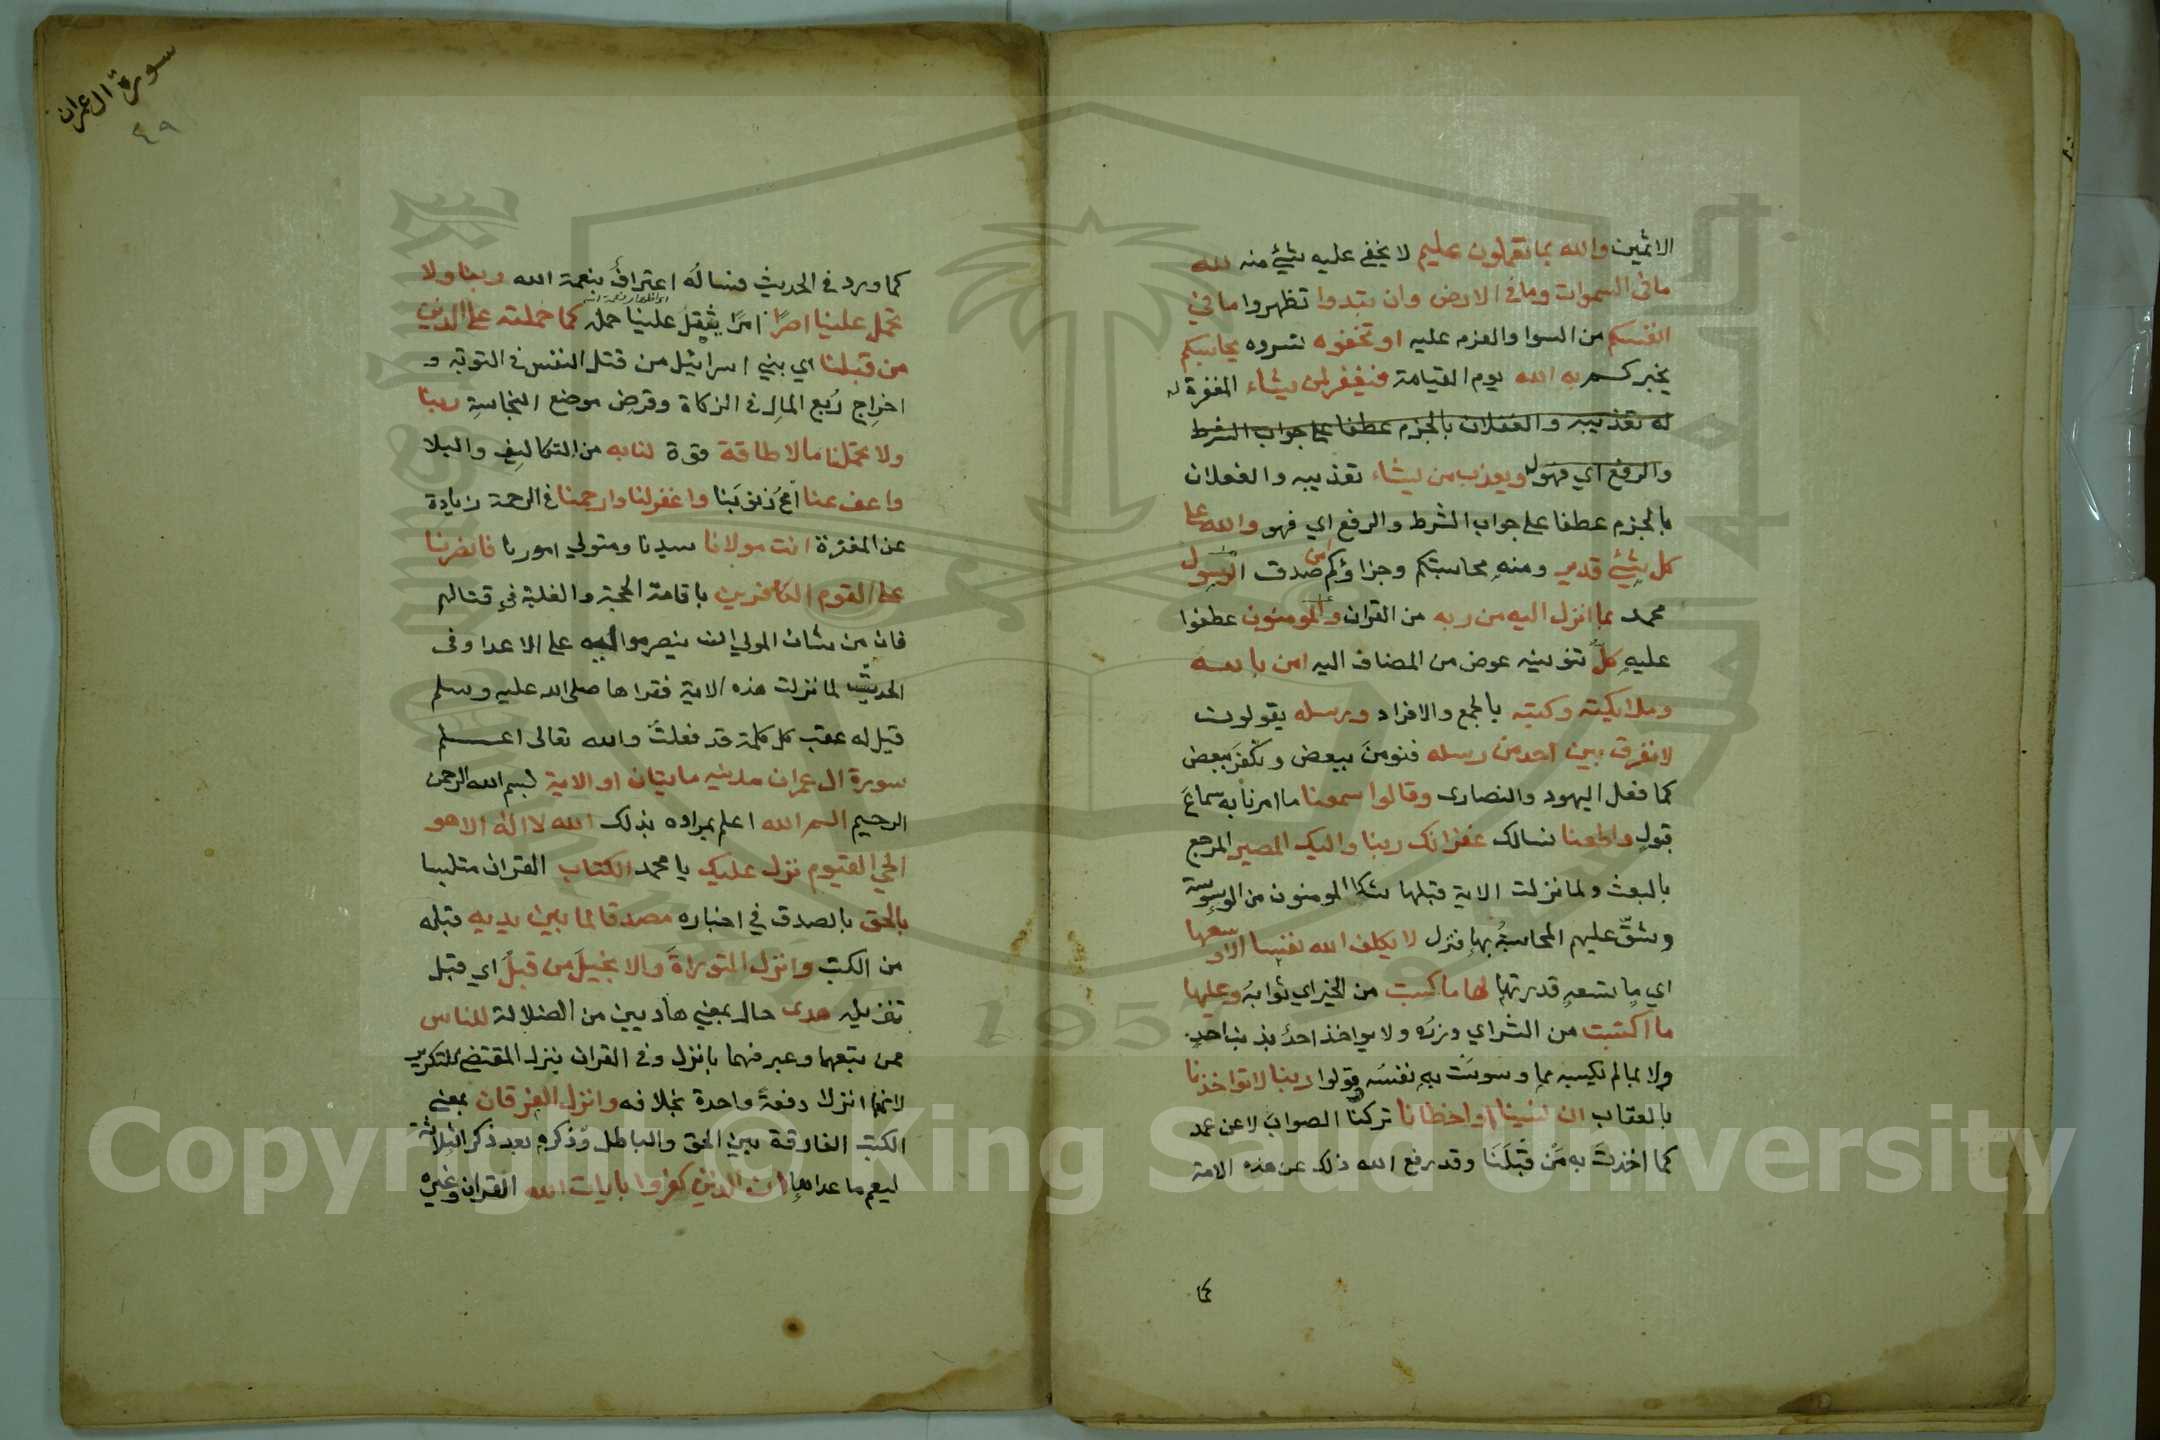 الاثمين والله بما تعملون عليم لا يخفى عليه شيئ منه لله
ما في السموات وما في الارض وان تبدوا تظهروا ما في
انفسكم من السوا والعزم عليه او تخفوه تسروه يحاسبكم
يخبركم به الله يوم القيامة فيغفر لمن يشاء المغفرة له
له تعذيبه والفعلان بالجزم عطفا على جواب الشرط
والرفع اي فهو ويعذب من يشاء تعذيبه والفعلان
بالجزم عطفا على جواب الشرط والرفع اي فهو والله على
كل شيئ قدير ومنه محاسبتكم وجزاؤكم امن صدق الرسول
محمد بما انزل اليه من ربه من القران والمومنون عطفوا
عليه كل تنوينه عوض من المضاف اليه امن بالله
وملائكته وكتبه بالجمع والافراد ورسله يقولون
لا نفرق بين احد من رسله فنومن ببعض ونكفر ببعض
كما فعل اليهود والنصارى وقالوا سمعنا ما امرنا به سماع
قبول واطعنا نسالك غفرانك ربنا واليك المصير المرجع
بالبعث ولما نزلت الاية قبلها شكا المومنون من الوسوسة
وشق عليهم المحاسبة بها فنزل لا يكلف الله نفسا الا وسعها
اي ما تسعه قدرتها لها ما كسبت من الخير اي ثوابه وعليها
ما اكتسبت من الشر اي وزره ولا يواخذ احد بذنب احد
ولا بما لم يكسبه مما وسوست به نفسه قولوا ربنا لا تواخذنا
بالعقاب ان نسينا او اخطانا تركنا الصواب لا عن عمد
كما اخذت به من قبلنا وقد رفع الله ذلك عن هذه الامة
كما
سورة ال عمران
٤٩
كما ورد في الحديث فسواله اعتراف بنعمة الله ربنا ولا
تحمل علينا اصرا امرا يثقل علينا حمله كما حملته على الذين
من قبلنا اي بني اسرائيل من قتل النفس في التوبة و
اخراج ربع المال في الزكاة وقرض موضع النجاسة ربنا
ولا تحملنا ما لا طاقة قوة لنا به من التكاليف والبلا
واعف عنا امح ذنوبنا واغفر لنا وارحمنا في الرحمة زيادة
عن المغفرة انت مولانا سيدنا ومتولي امورنا فانصرنا
على القوم الكافرين باقامة الحجة والغلبة في قتالهم
فان من شان المولى ان ينصر مواليه على الاعدا وفى
الحديث لما نزلت هذه الاية فقراها صلى الله عليه وسلم
قيل له عقب كل كلمة قد فعلت والله تعالى اعلم
سورة ال عمران مدنيه مايتان او الاية بسم الله الرحمن
الرحيم الم الله اعلم بمراده بذلك الله لا اله الا هو
الحي القيوم نزل عليك يا محمد الكتاب القران متلبسا
بالحق بالصدق في اخباره مصدقا لما بين يديه قبله
من الكتب وانزل التوراة والانجيل من قبل اي قبل
تنزيله هدى حال بمعنى هاديين من الضلالة للناس
ممن تبعهما وعبر فيهما بانزل وفي القران بنزل المقتضي للتكرير
لانهما انزلا دفعة واحدة بخلافه وانزل الفرقان بمعنى
الكتب الفارقة بين الحق والباطل وذكره بعد ذكر الثلاثة
ليعم ما عداها ان الذين كفروا بايات الله القران وغيره
Copyright © King Saud University
1957